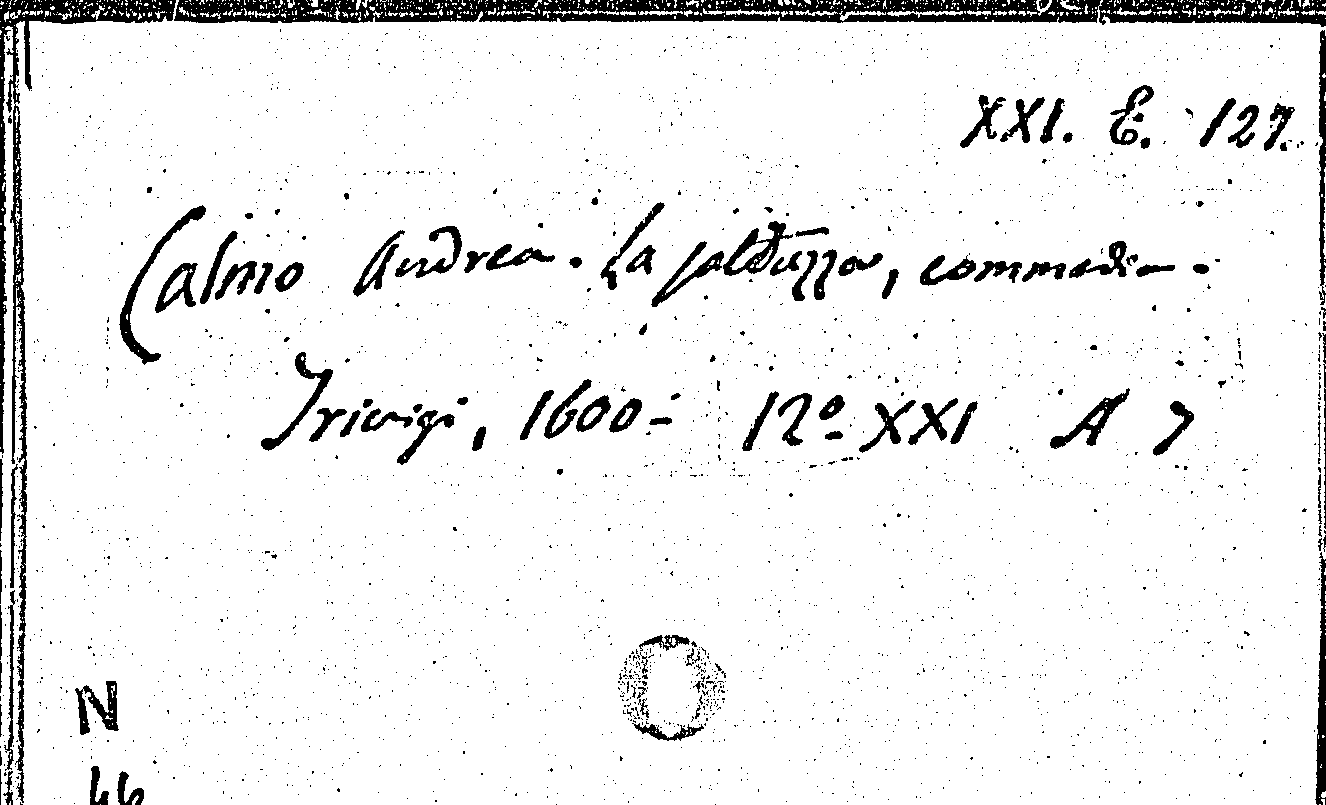 XXI. E. 127.
Calmo Andrea. La saltuzza, commedia.
Trivigi, 1600 - 12º XXI A 7
N
46